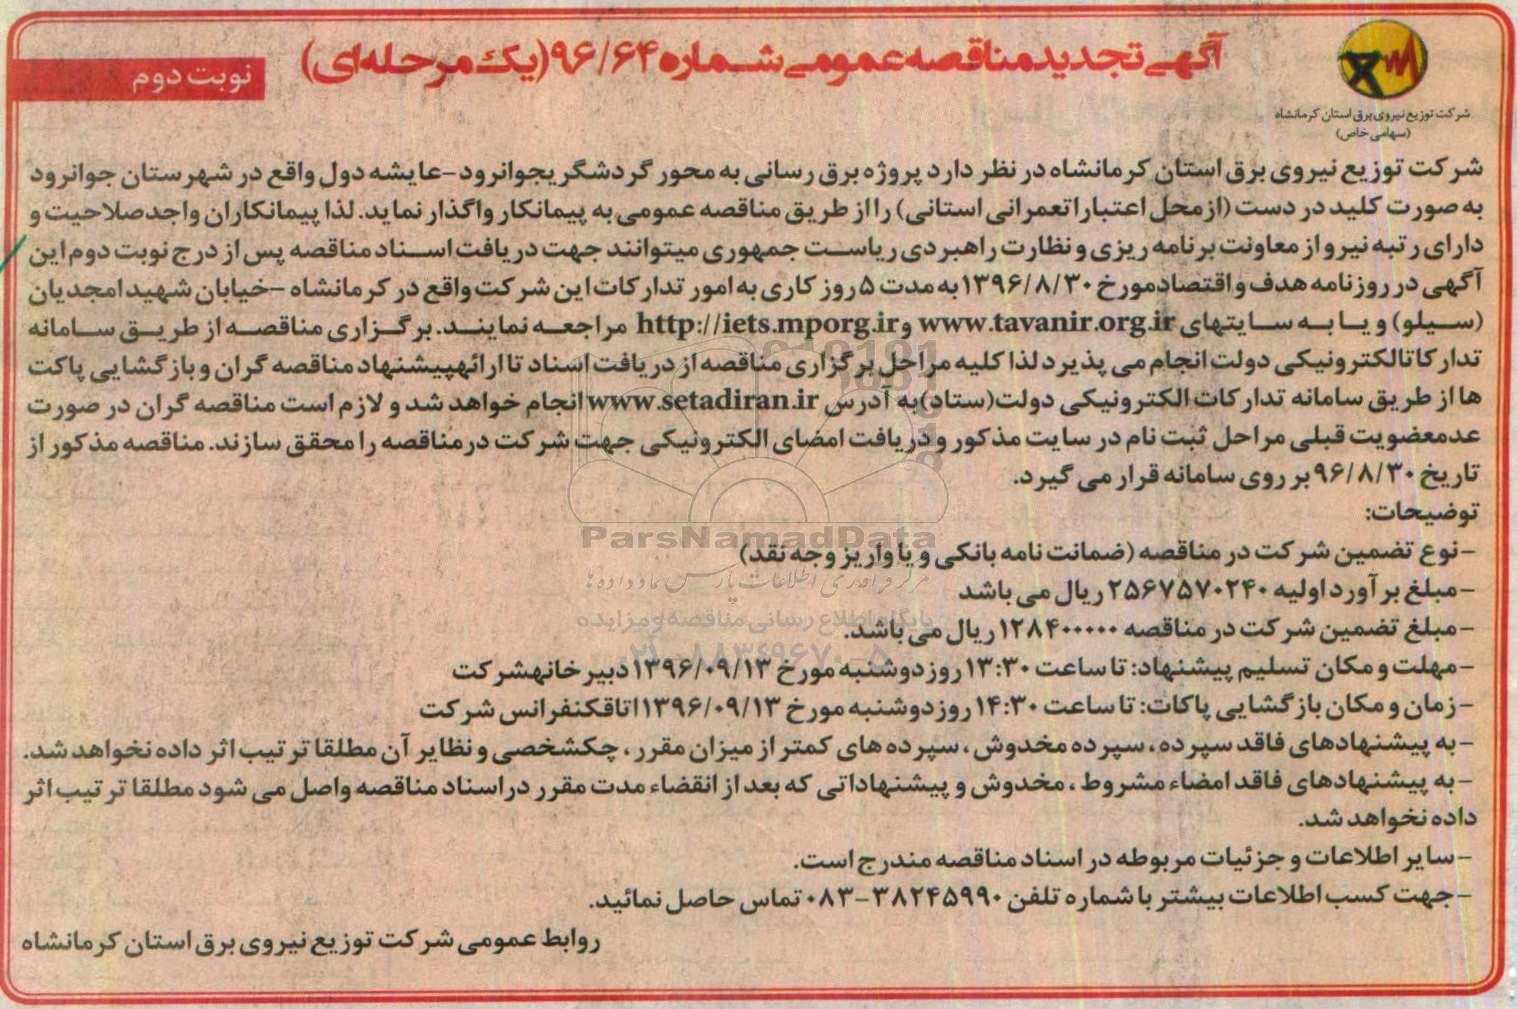 آگهی تجدید مناقصه عمومی شماره ۹۶/۶۴ (یک مرحله‌ای)
نوبت دوم
شرکت توزیع نیروی برق استان کرمانشاه
(سهامی خاص)
شرکت توزیع نیروی برق استان کرمانشاه در نظر دارد پروژه برق رسانی به محور گردشگریجوانرود-عایشه دول واقع در شهرستان جوانرود
به صورت کلید در دست (از محل اعتباراتعمرانی استانی) را از طریق مناقصه عمومی به پیمانکار واگذار نماید. لذا پیمانکاران واجدصلاحیت و
دارای رتبه نیرو از معاونت برنامه ریزی و نظارت راهبردی ریاست جمهوری میتوانند جهت دریافت اسناد مناقصه پس از درج نوبت دوم این
آگهی در روزنامه هدف و اقتصادمورخ ۱۳۹۶/۸/۳۰ به مدت ۵ روز کاری به امور تدارکات این شرکت واقع در کرمانشاه -خیابان شهید امجدیان
(سیلو) و یا به سایتهای www.tavanir.org.ir و http://iets.mporg.ir مراجعه نمایند. برگزاری مناقصه از طریق سامانه
تدارکاتالکترونیکی دولت انجام می پذیرد لذا کلیه مراحل برگزاری مناقصه از دریافت اسناد تا ارائهپیشنهاد مناقصه گران و بازگشایی پاکت
ها از طریق سامانه تدارکات الکترونیکی دولت(ستاد)به آدرس www.setadiran.ir انجام خواهد شد و لازم است مناقصه گران در صورت
عدمعضویت قبلی مراحل ثبت نام در سایت مذکور و دریافت امضای الکترونیکی جهت شرکت درمناقصه را محقق سازند. مناقصه مذکور از
تاریخ ۹۶/۸/۳۰ بر روی سامانه قرار می گیرد.
توضیحات:
-نوع تضمین شرکت در مناقصه (ضمانت نامه بانکی و یا واریز وجه نقد)
-مبلغ برآورد اولیه ۲۵۶۷۵۷۰۲۴۰ ریال می باشد
-مبلغ تضمین شرکت در مناقصه ۱۲۸۴۰۰۰۰۰ ریال می باشد.
-مهلت و مکان تسلیم پیشنهاد: تا ساعت ۱۳:۳۰ روز دوشنبه مورخ ۱۳۹۶/۰۹/۱۳ دبیرخانهشرکت
-زمان و مکان بازگشایی پاکات: تا ساعت ۱۴:۳۰ روز دوشنبه مورخ ۱۳۹۶/۰۹/۱۳ اتاقکنفرانس شرکت
-به پیشنهادهای فاقد سپرده، سپرده مخدوش، سپرده های کمتر از میزان مقرر، چکشخصی و نظایر آن مطلقا ترتیب اثر داده نخواهد شد.
-به پیشنهادهای فاقد امضاء مشروط، مخدوش و پیشنهاداتی که بعد از انقضاء مدت مقرر در اسناد مناقصه واصل می شود مطلقا ترتیب اثر
داده نخواهد شد.
-سایر اطلاعات و جزئیات مربوطه در اسناد مناقصه مندرج است.
-جهت کسب اطلاعات بیشتر با شماره تلفن ۳۸۲۴۵۹۹۰-۰۸۳ تماس حاصل نمائید.
روابط عمومی شرکت توزیع نیروی برق استان کرمانشاه
ParsNamadData
پایگاه اطلاع رسانی مناقصه و مزایده